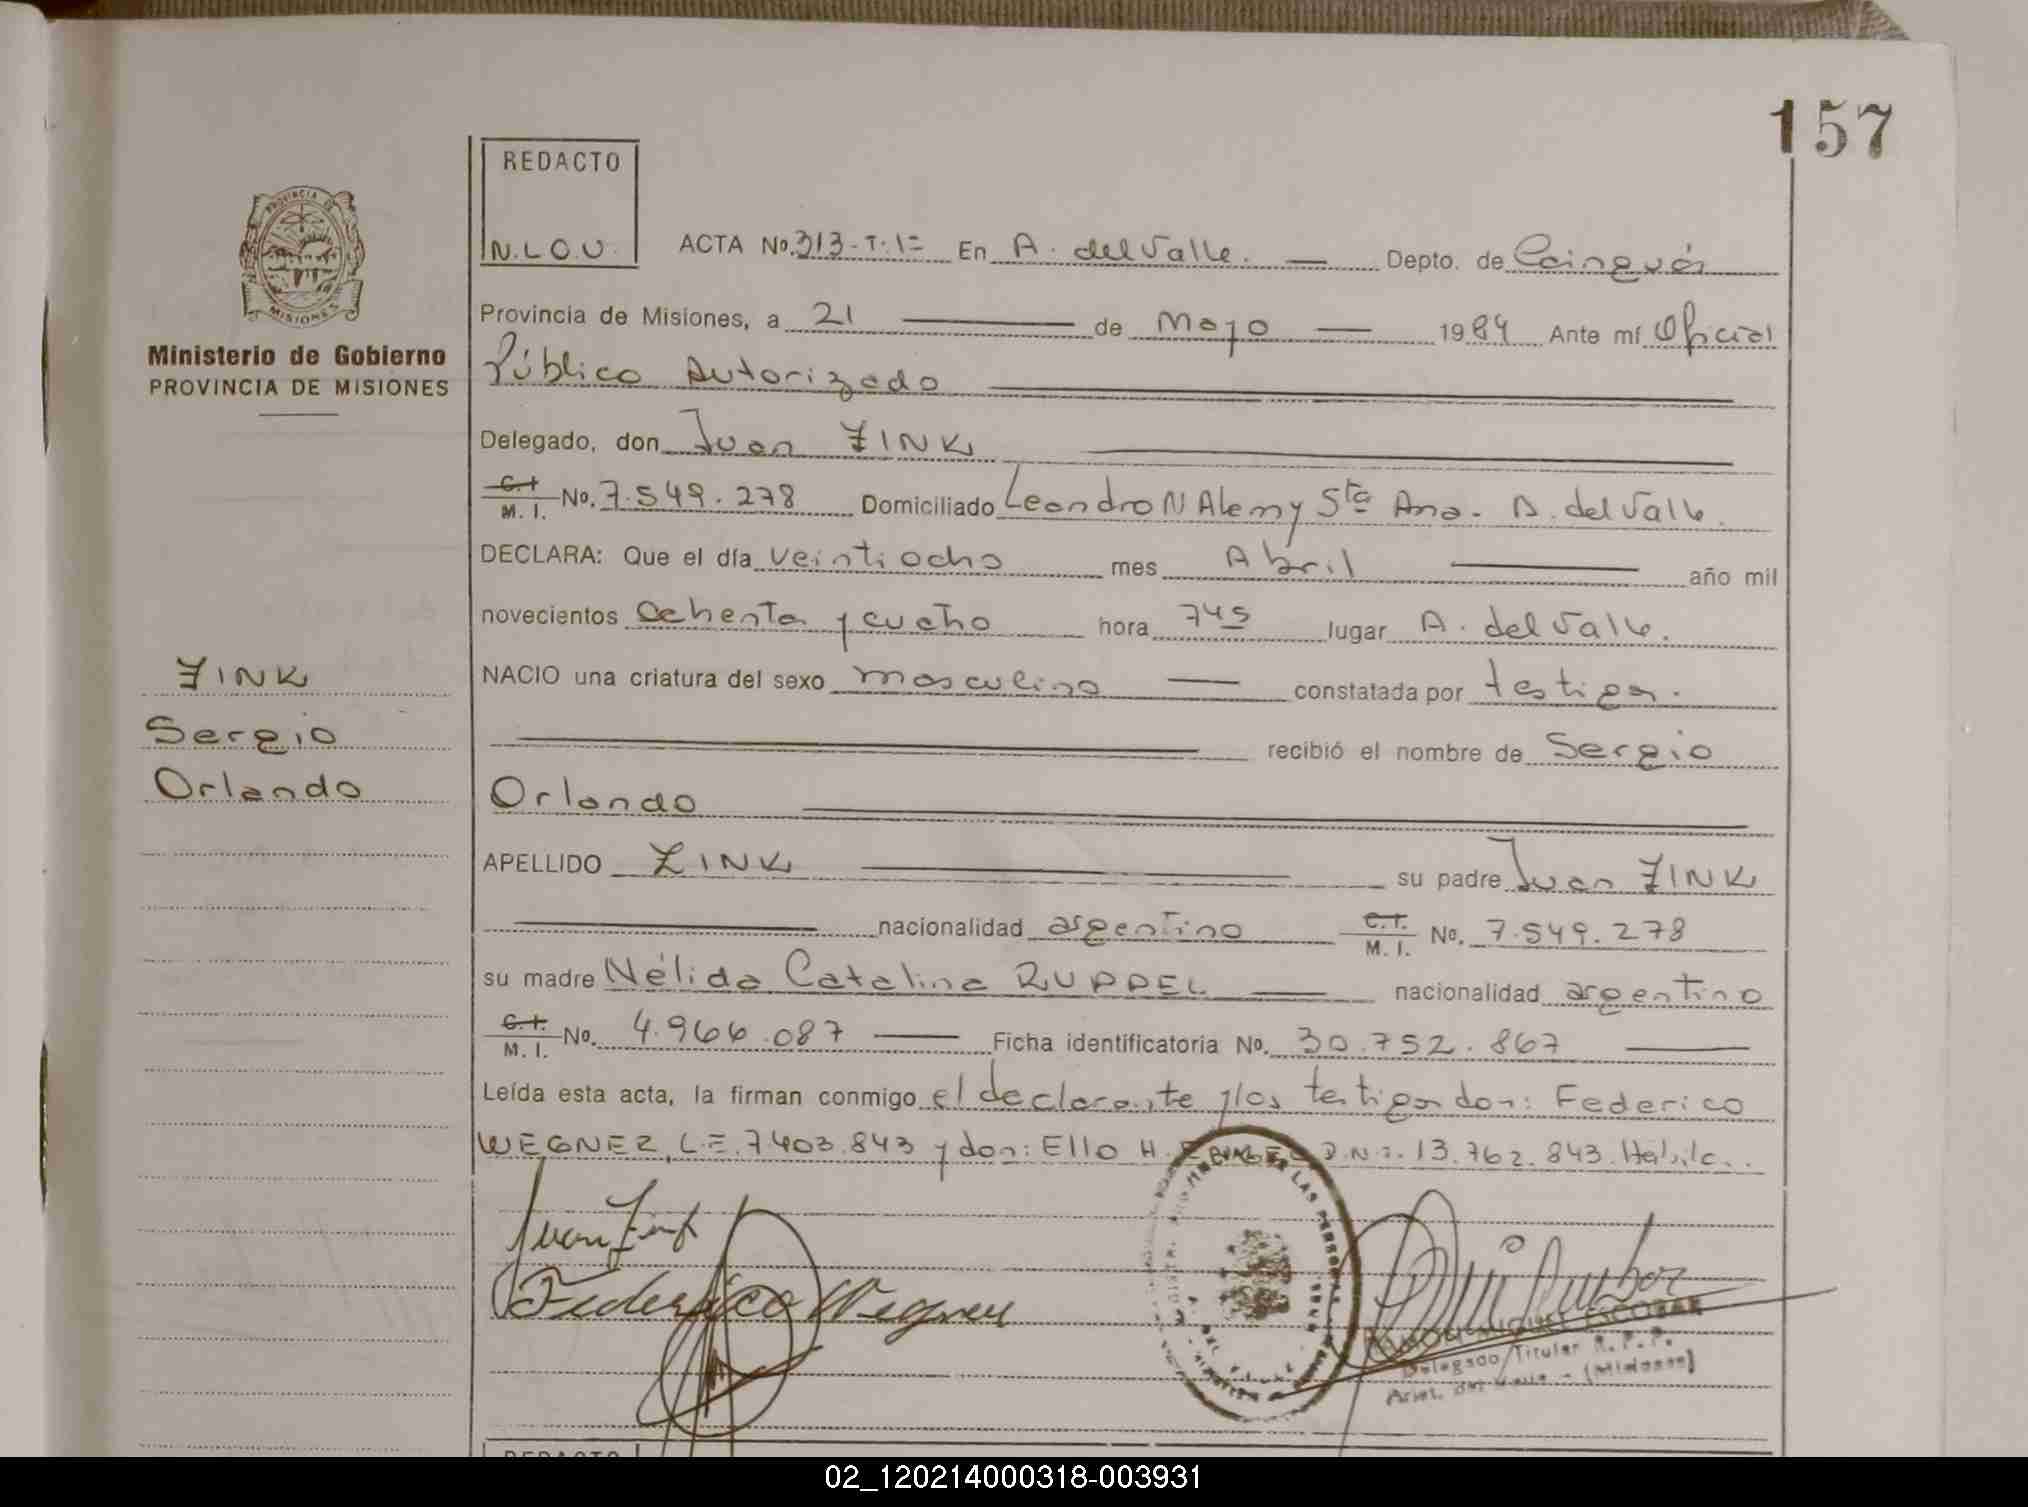 157
REDACTO
N.L.O.U.
ACTA No. 313-T:1= En A. del Valle. Depto. de Cainguás
Provincia de Misiones, a 21 de Mayo 1984 Ante mí Oficial
Público Autorizado
Delegado, don Juan ZINK
C.I. M. I. No. 7.549.278 Domiciliado Leandro N Alem y Sta Ana. A. del Valle.
DECLARA: Que el día veintiocho mes Abril año mil
novecientos ochenta y cuatro hora 745 lugar A. del Valle.
NACIO una criatura del sexo masculino constatada por testigos.
recibió el nombre de Sergio
Orlando
APELLIDO ZINK su padre Juan ZINK
nacionalidad argentino C.I. M. I. No. 7.549.278
su madre Nélida Catalina RUPPEL nacionalidad argentino
C.I. M. I. No. 4.966.087 Ficha identificatoria No. 30.752.867
Leída esta acta, la firman conmigo el declarante y los testigos don: Federico
WEGNER, L.E. 7403.843 y don: Ello H. D.N.I. 13.762.843.
Juan Zink
Federico Wegner
ESCOBAR
Delegado Titular R.P.P.
Arist. del Valle - (Misiones)
PROVINCIA DE
MISIONES
Ministerio de Gobierno
PROVINCIA DE MISIONES
ZINK
Sergio
Orlando
REDACTO
02_120214000318-003931